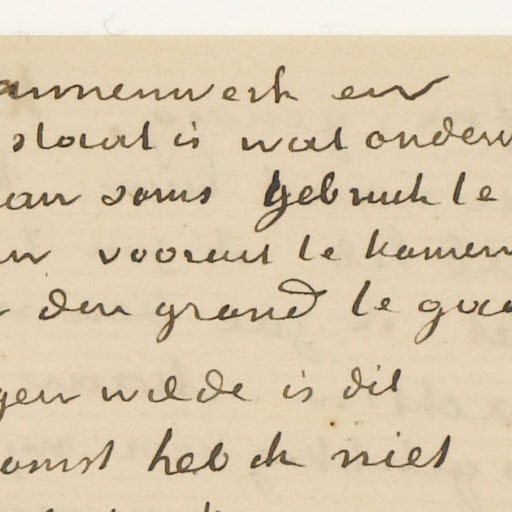 annenwerk en
staat is wat onder
an soms gebruik te
en vooruit te komen
den grond te gaa
gen wilde is dit
omst heb ik niet